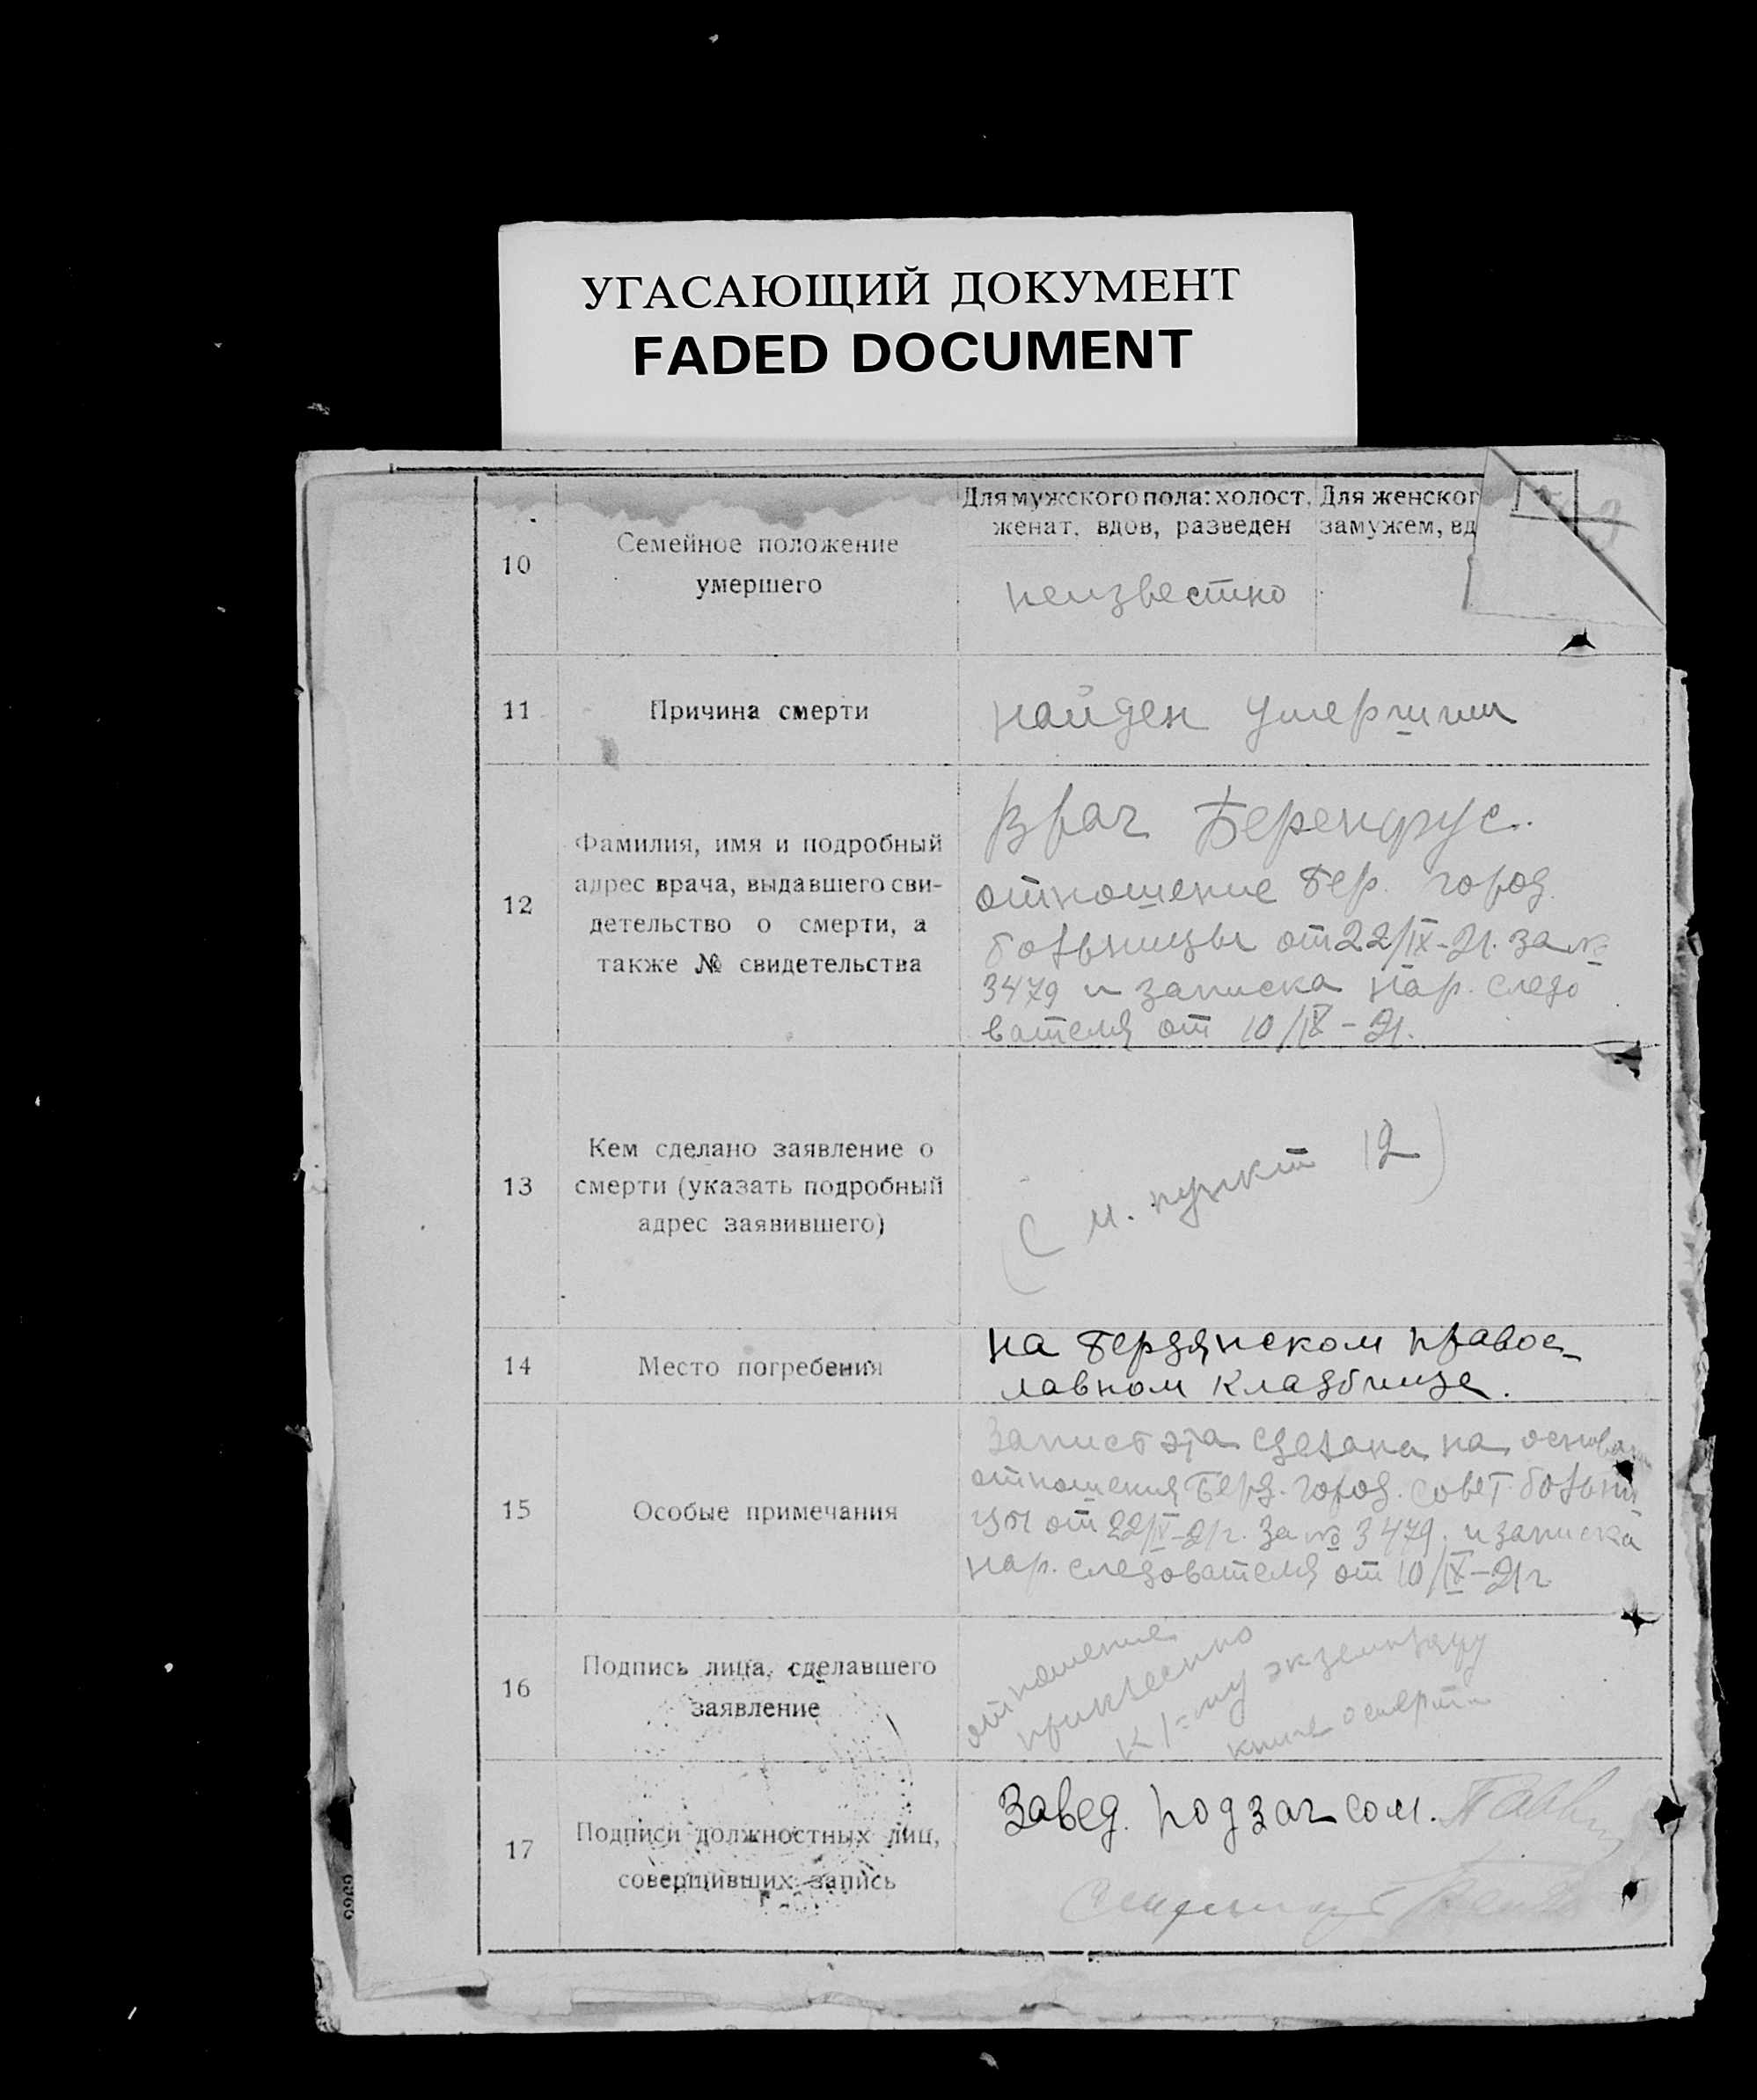 УГАСАЮЩИЙ ДОКУМЕНТ
FADED DOCUMENT
10
Семейное положение
умершего
Для мужского пола: холост,
женат, вдов, разведен
Для женског
замужем, вд
неизвестно
11
Причина смерти
найден умершим
12
Фамилия, имя и подробный
адрес врача, выдавшего сви-
детельство о смерти, а
также № свидетельства
Врач
отношение Бер. город.
больницы от 22/IX-21. за №
3479 и записка нар. следо
вателя от 10/IX-21.
13
Кем сделано заявление о
смерти (указать подробный
адрес заявившего)
(см. пункт 12)
14
Место погребения
на Бердянском правос-
лавном кладбище.
15
Особые примечания
Запись эта сделана на основан
отношения Берд. город. совет. больни
цы от 22/IX-21г. за № 3479, и записка
нар. следователя от 10/IX-21г
16
Подпись лица, сделавшего
заявление
отношение
приклеено
к 1-му экземпляру
книге о смерти
17
Подписи должностных лиц,
совершивших запись
Завед. подзагсом.
6366